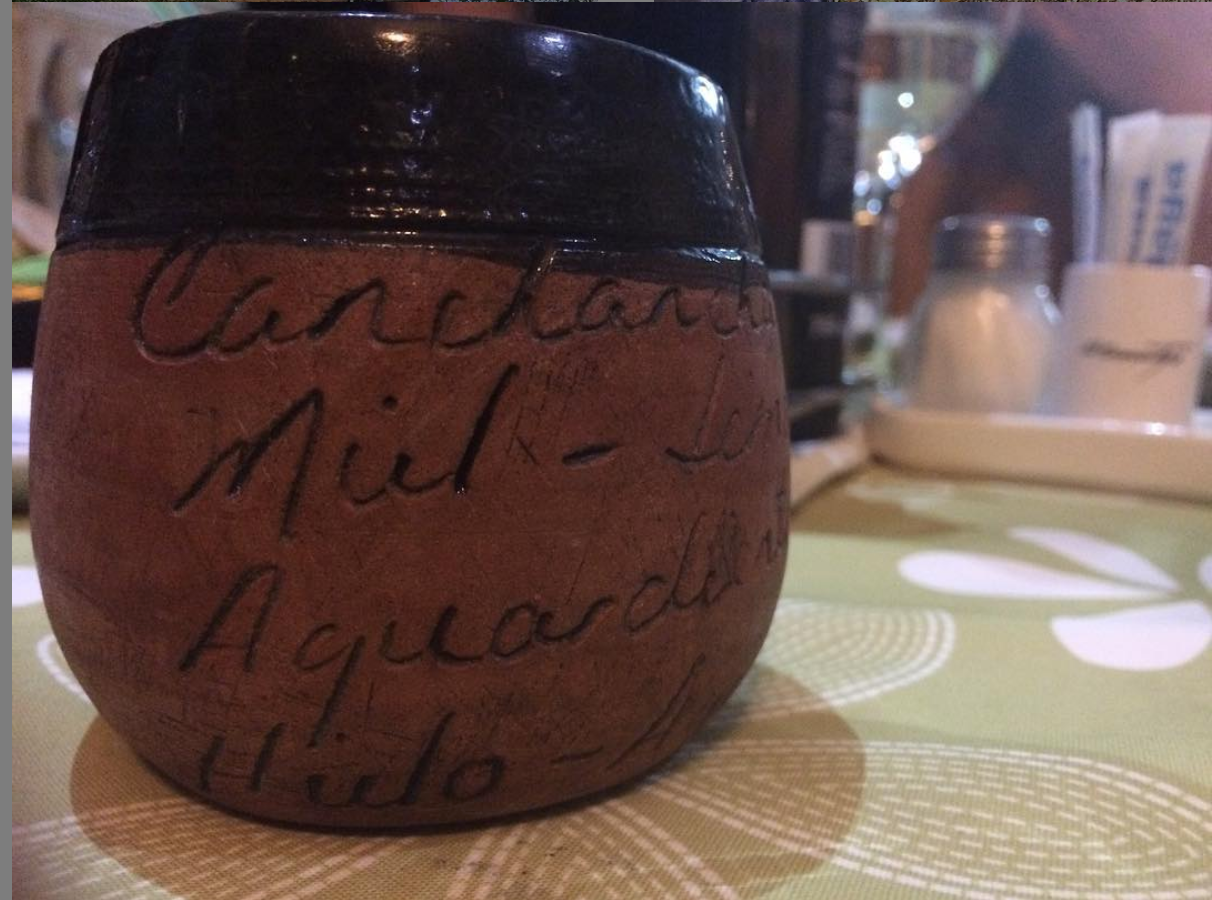 Canchancha
Miel - Lim
Aguardient
Hielo - A